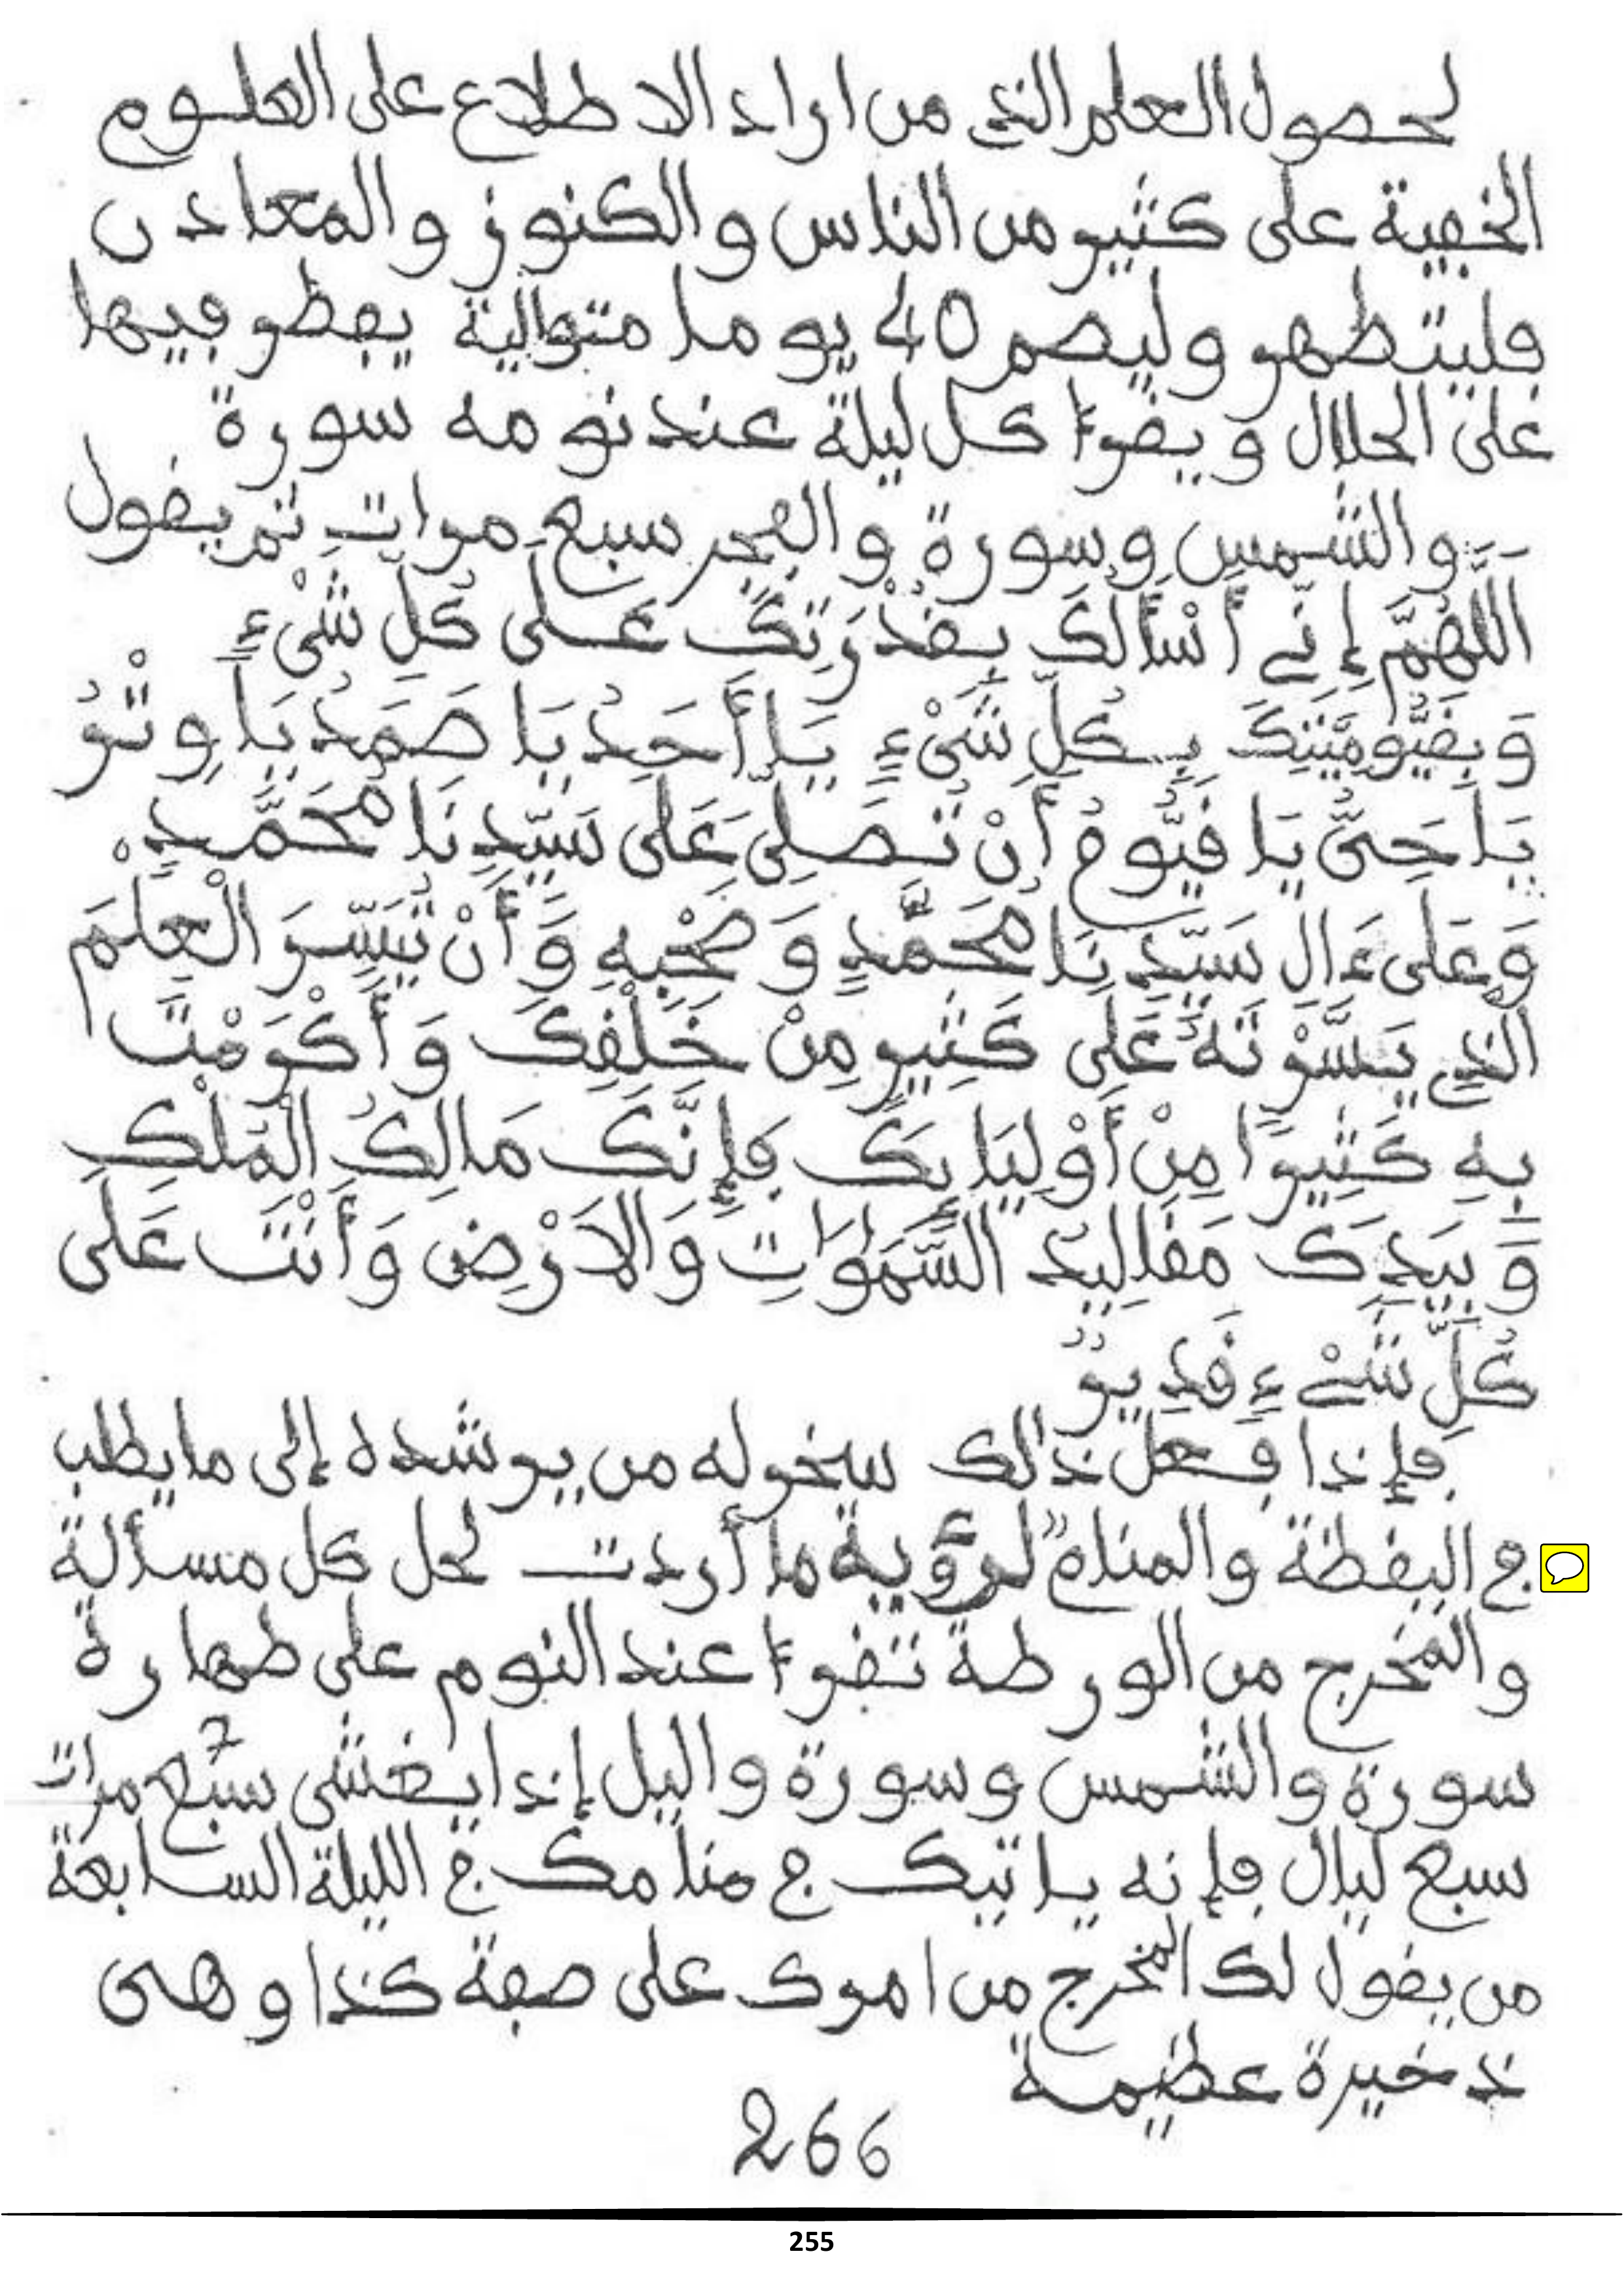 لحصول العلم الذي من اراد الاطلاع على العلوم
الخفية على كثير من الناس والكنوز والمعادن
فليتطهر وليصم 40 يوما متوالية يفطر فيها
على الحلال ويقرأ كل ليلة عند نومه سورة
والشمس وسورة والفجر سبع مرات ثم يقول
اَللَّهُمَّ إِنِّي أَسْأَلُكَ بِقُدْرَتِكَ عَلَى كُلِّ شَيْءٍ
وَبِقَيُّومِيَّتِكَ بِكُلِّ شَيْءٍ يَا أَحَدُ يَا صَمَدُ يَا وِتْرُ
يَا حَيُّ يَا قَيُّومُ أَنْ تُصَلِّيَ عَلَى سَيِّدِنَا مُحَمَّدٍ
وَعَلَى ءَالِ سَيِّدِنَا مُحَمَّدٍ وَصَحْبِهِ وَأَنْ تُيَسِّرَ الْعِلْمَ
الَّذِي يَسَّرْتَهُ عَلَى كَثِيرٍ مِنْ خَلْقِكَ وَأَكْرَمْتَ
بِهِ كَثِيرًا مِنْ أَوْلِيَائِكَ فَإِنَّكَ مَالِكُ الْمُلْكِ
وَبِيَدِكَ مَقَالِيدُ السَّمَوَاتِ وَالاَرْضِ وَأَنْتَ عَلَى
كُلِّ شَيْءٍ قَدِيرٌ
فإذا فعل ذلك سخر له من يرشده إلى ما يطلب
في اليقظة والمنام لرؤية ما أردت لحل كل مسألة
والمخرج من الورطة تقرأ عند النوم على طهارة
سورة والشمس وسورة واليل إذا يغشى سبع 7 مرات
سبع ليال فإنه ياتيك في منامك في الليلة السابعة
من يقول لك المخرج من امرك على صفة كذا وهي
ذخيرة عظيمة
266
255